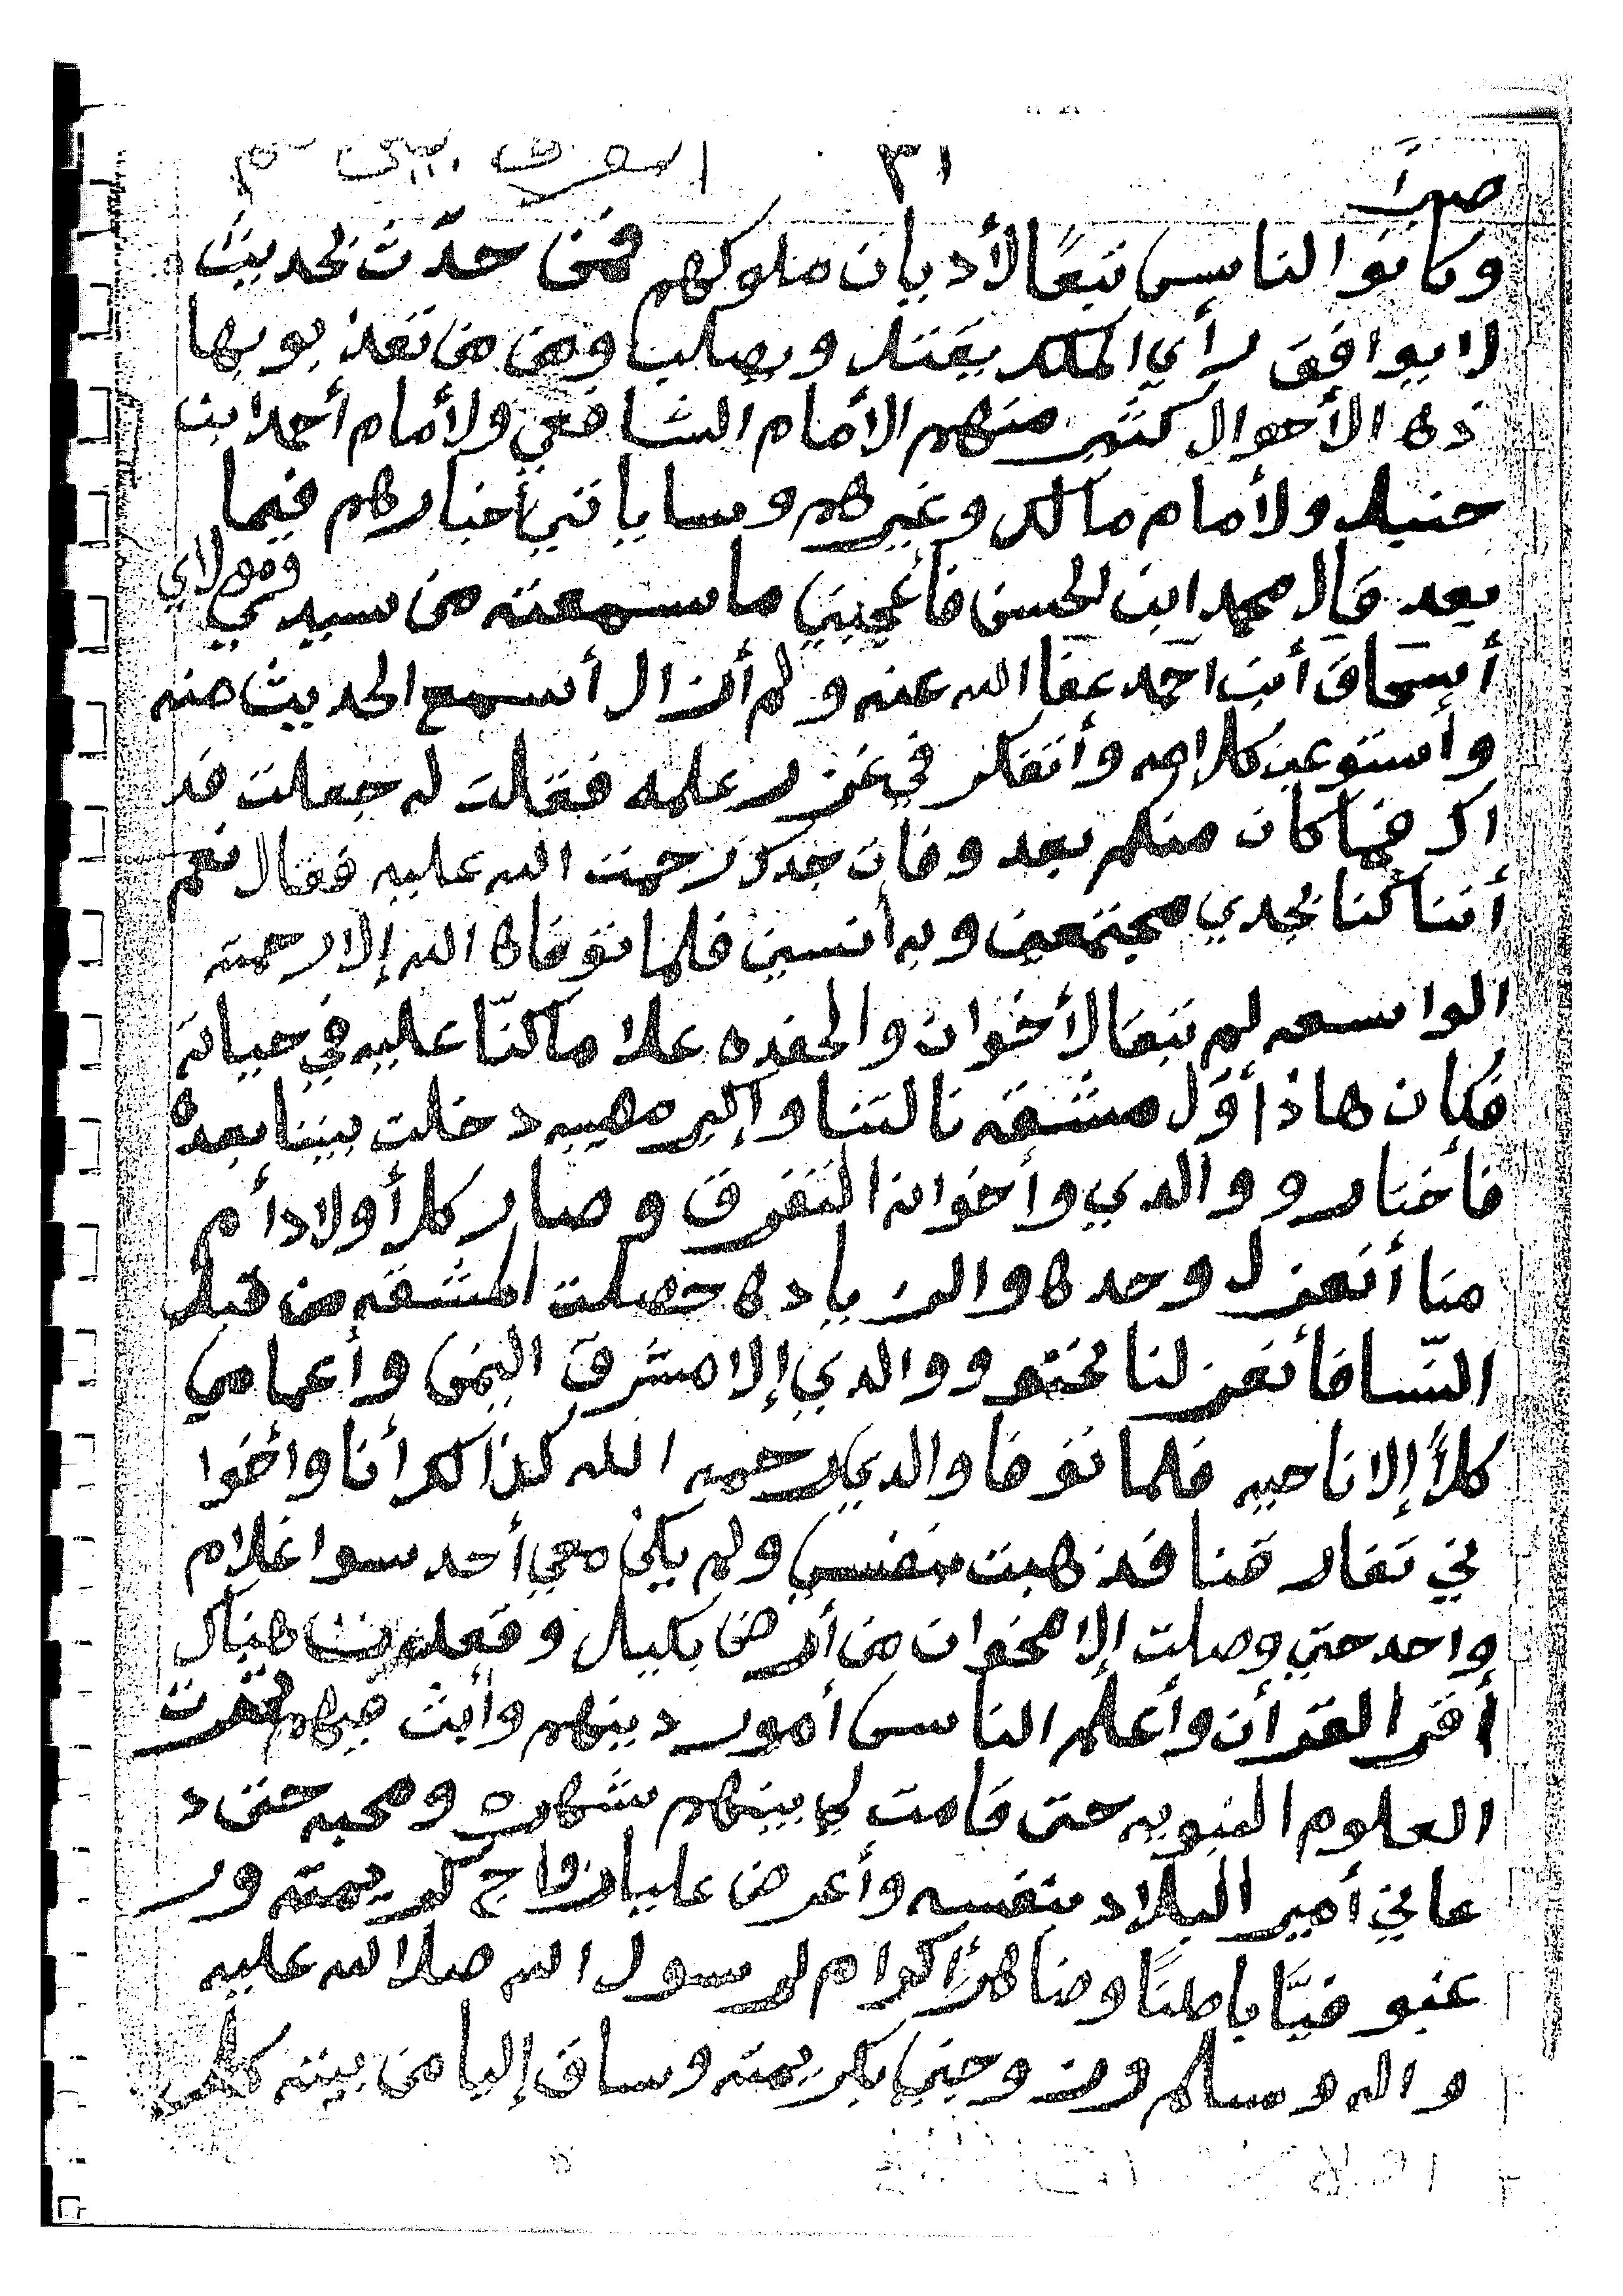 ٣١
وكانو الناس تبعًا لأديان ملوكهم فمن حدّث بحديث
لا يوافق رأي الملك يقتل ويصلب ومن من تعذبو بها
ذه الأحوال كثير منهم الأمام الشافعي ولأمام أحمد ابن
حنبل ولأمام مالك وغيرهم وسايا تي أخبارهم فيما
بعد قال محمد ابن لحسن فأعجبني ما سمعته من سيدي ومولاي
أسحاق أبن احمد عفا الله عنه ولم أزال أسمع الحديث منه
وأستوعب كلامه وأتفكر في غزر علمه فقلت له جعلت فد
اك فما كان منكم بعد وفات جدك رحمت الله عليه فقال نعم
أننا كنا بجدي مجتمعين وبه أنسين فلما توفاه الله إلا رحمته
الواسعه لم تبقا لأخوان والحفده علا ما كنّا عليه في حياته
فكان هاذا أوّل مشقه نالتنا وإكبر مصيبه دخلت بيننا بعده
فأختارو والدي وأخوانه التفرق وصار كلاً أولاد أم
منا أنعزل وحده والزيا ده حصلت المشقه من قبل
النّسا فأنعز لنا نحنو ووالدي إلا مشرق اليمن وأعمامي
كلاً إلا ناحيه فلما توفا والدي رحمه الله كذالك أنا وأخوا
ني تفار قنا فذهبت بنفسي ولم يكن معي أحد سوا غلام
واحد حتى وصلت إلا مخوان من أرض بكيل وقعلت هناك
أقرا القرأن وأعلم الناس أمور دينهم وأبث فيهم
العلوم النبويه حتى قامت لي بينهم شهره ومحبه حتى د
عاني أمير البلاد بنفسه وأعرض عليا زواج كريمته ور
غبو فيّا باطنًا وضاهرًا أكرام لرسول الله صلا الله عليه
واله وسلم وزوجني بكريمته وساق إليا من بيته